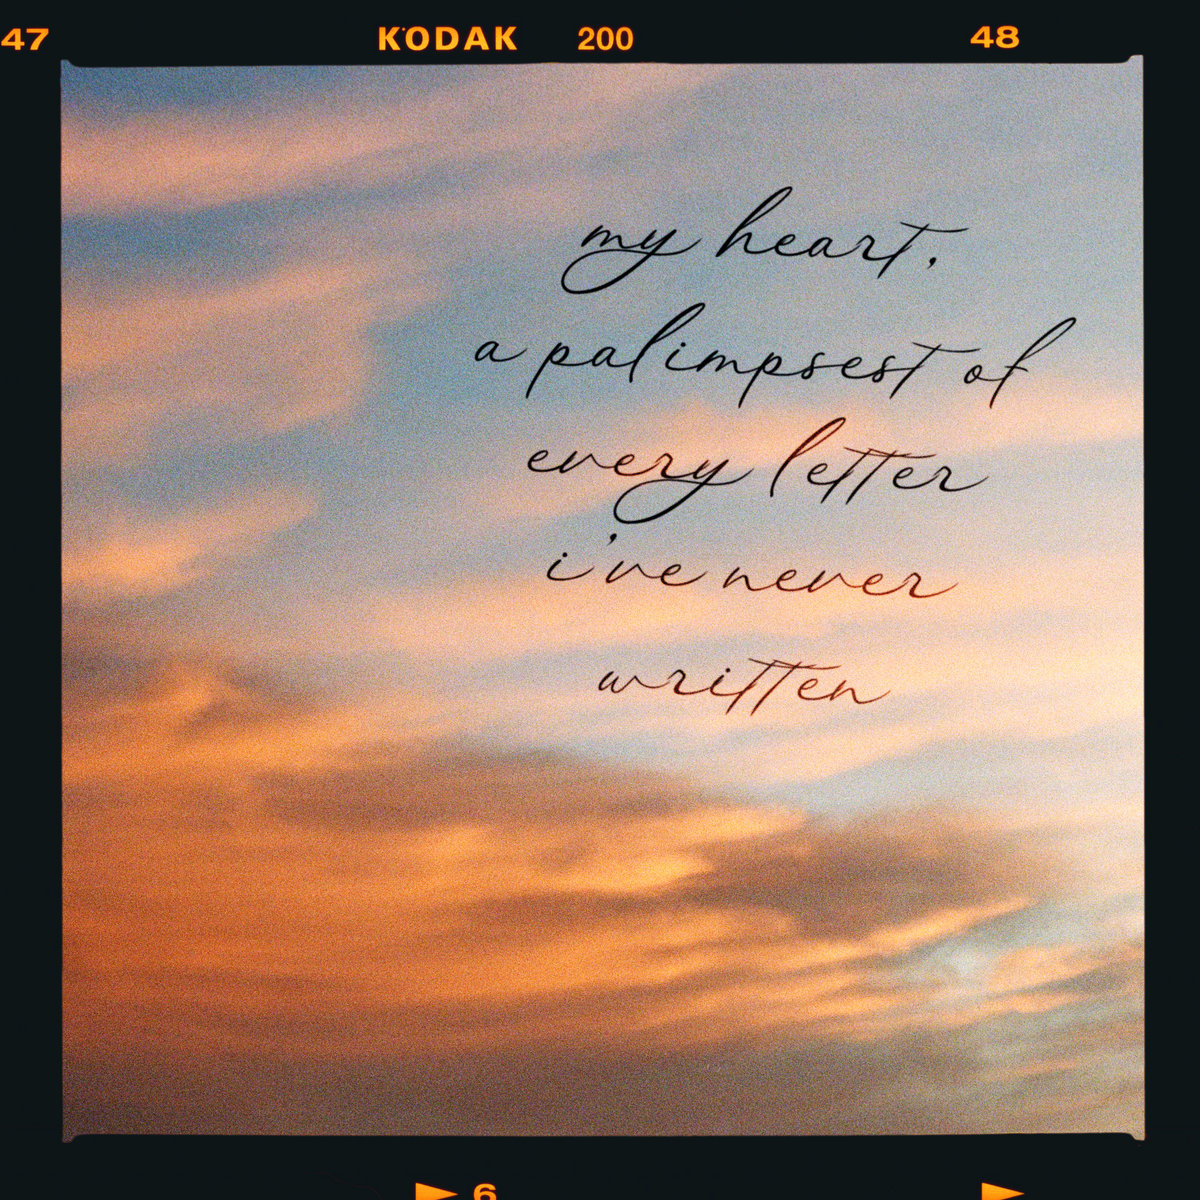 47 KODAK 200 48
my heart,
a palimpsest of
every letter
i've never
written
6